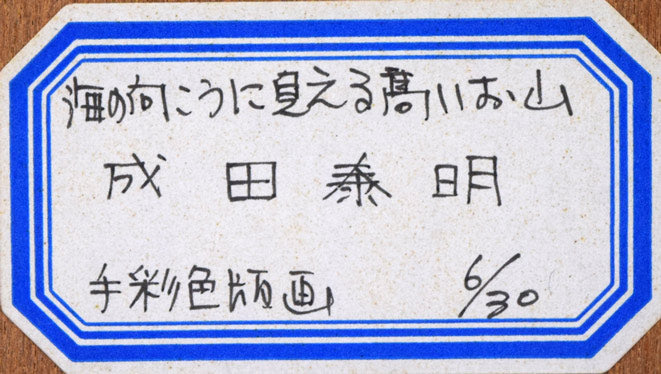 海の向こうに見える髙いお山
成田泰明
手彩色版画 6/30